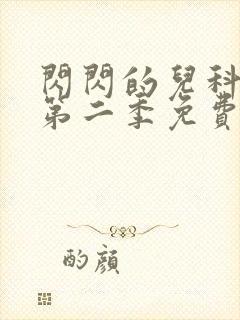 閃閃的兒科
第二季免費
酌顏